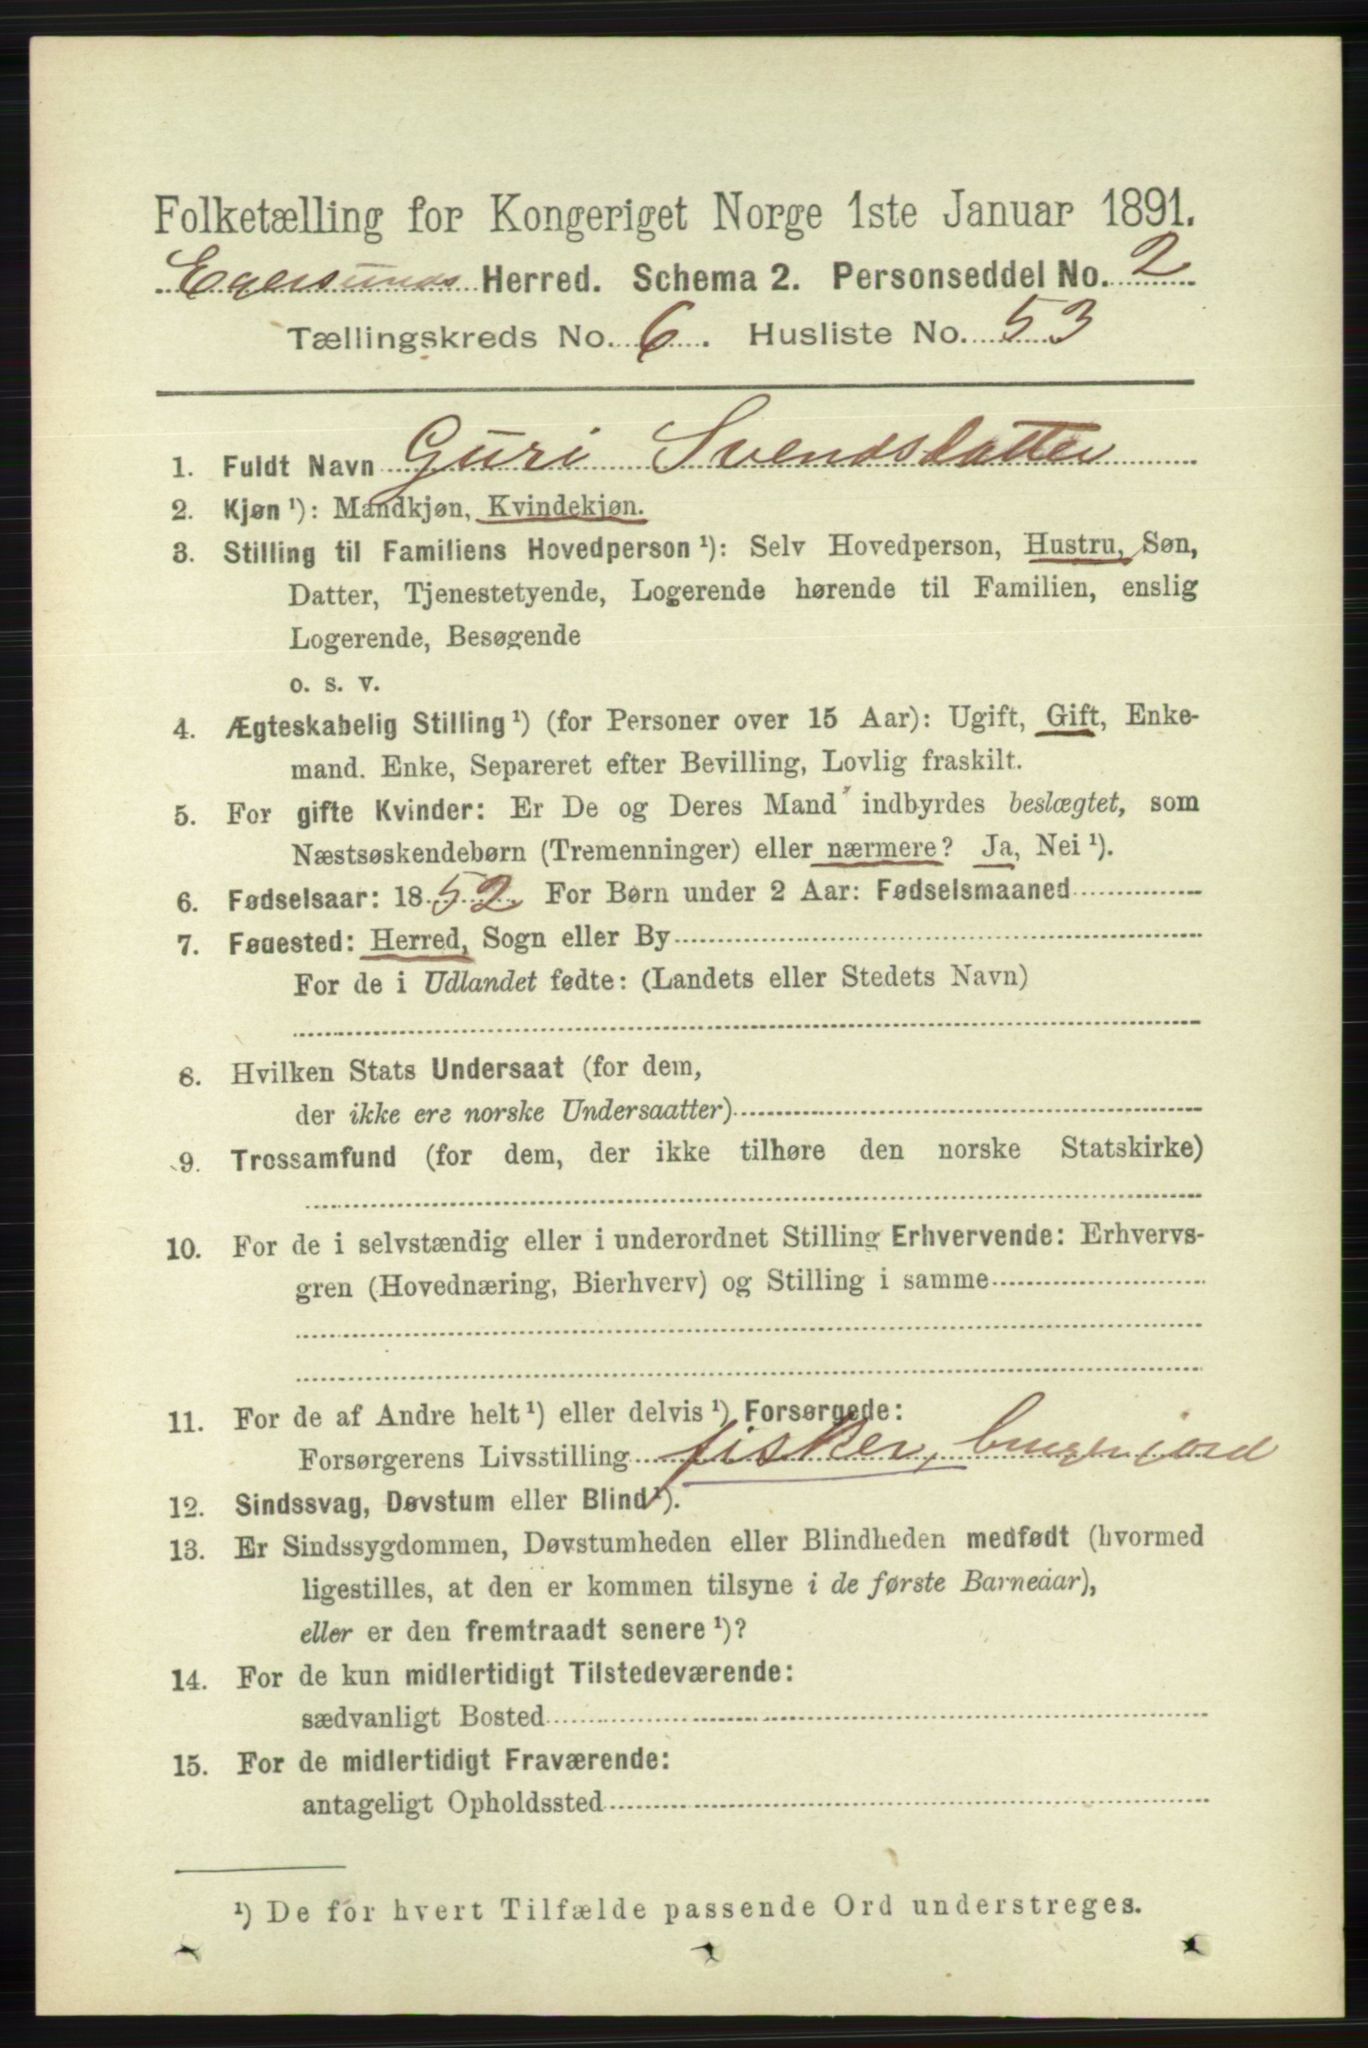 Folketælling for Kongeriget Norge 1ste Januar 1891.
Egersunds Herred. Schema 2. Personseddel No. 2
Tællingskreds No. 6. Husliste No. 53
1. Fuldt Navn Guri Svendsdatter
2. Kjøn ¹): Mandkjøn, Kvindekjøn.
3. Stilling til Familiens Hovedperson ¹): Selv Hovedperson, Hustru, Søn,
Datter, Tjenestetyende, Logerende hørende til Familien, enslig
Logerende, Besøgende
o. s. v.
4. Ægteskabelig Stilling ¹) (for Personer over 15 Aar): Ugift, Gift, Enke-
mand. Enke, Separeret efter Bevilling, Lovlig fraskilt.
5. For gifte Kvinder: Er De og Deres Mand indbyrdes beslægtet, som
Næstsøskendebørn (Tremenninger) eller nærmere? Ja, Nei ¹).
6. Fødselsaar: 1852 For Børn under 2 Aar: Fødselsmaaned
7. Fødested: Herred, Sogn eller By
For de i Udlandet fødte: (Landets eller Stedets Navn)
8. Hvilken Stats Undersaat (for dem,
der ikke ere norske Undersaatter)
9. Trossamfund (for dem, der ikke tilhøre den norske Statskirke)
10. For de i selvstændig eller i underordnet Stilling Erhvervende: Erhvervs-
gren (Hovednæring, Bierhverv) og Stilling i samme
11. For de af Andre helt ¹) eller delvis ¹) Forsørgede:
Forsørgerens Livsstilling fisker, bruger jord
12. Sindssvag, Døvstum eller Blind ¹).
13. Er Sindssygdommen, Døvstumheden eller Blindheden medfødt (hvormed
ligestilles, at den er kommen tilsyne i de første Barneaar),
eller er den fremtraadt senere ¹)?
14. For de kun midlertidigt Tilstedeværende:
sædvanligt Bosted
15. For de midlertidigt Fraværende:
antageligt Opholdssted
¹) De for hvert Tilfælde passende Ord understreges.